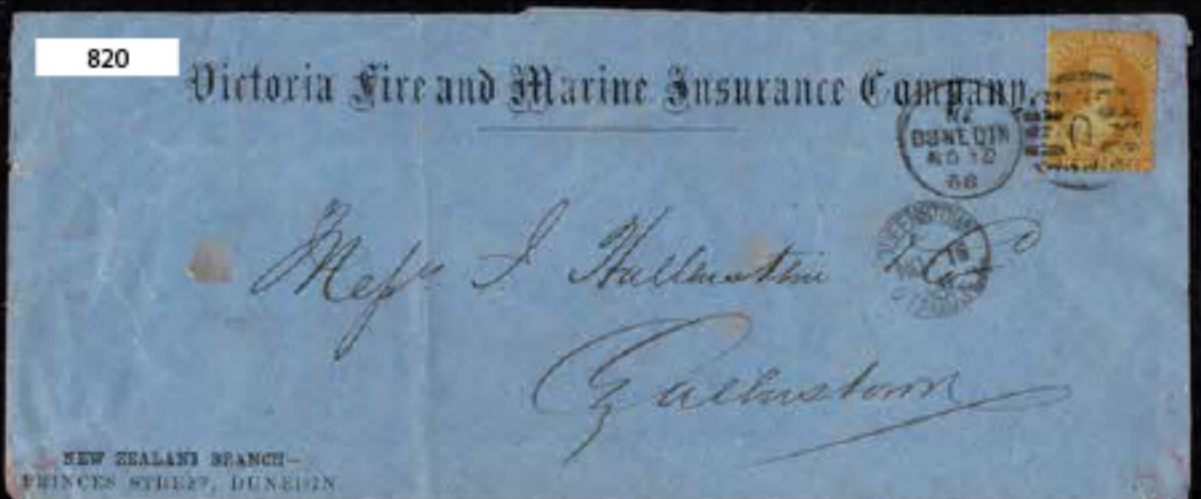 820
Victoria Fire and Marine Insurance Company.
NZ
DUNEDIN
NO 12
68
O
QUEENSTOWN
18
Messrs I Hallenstein & Co
Queenstown
NEW ZEALAND BRANCH—
PRINCES STREET, DUNEDIN